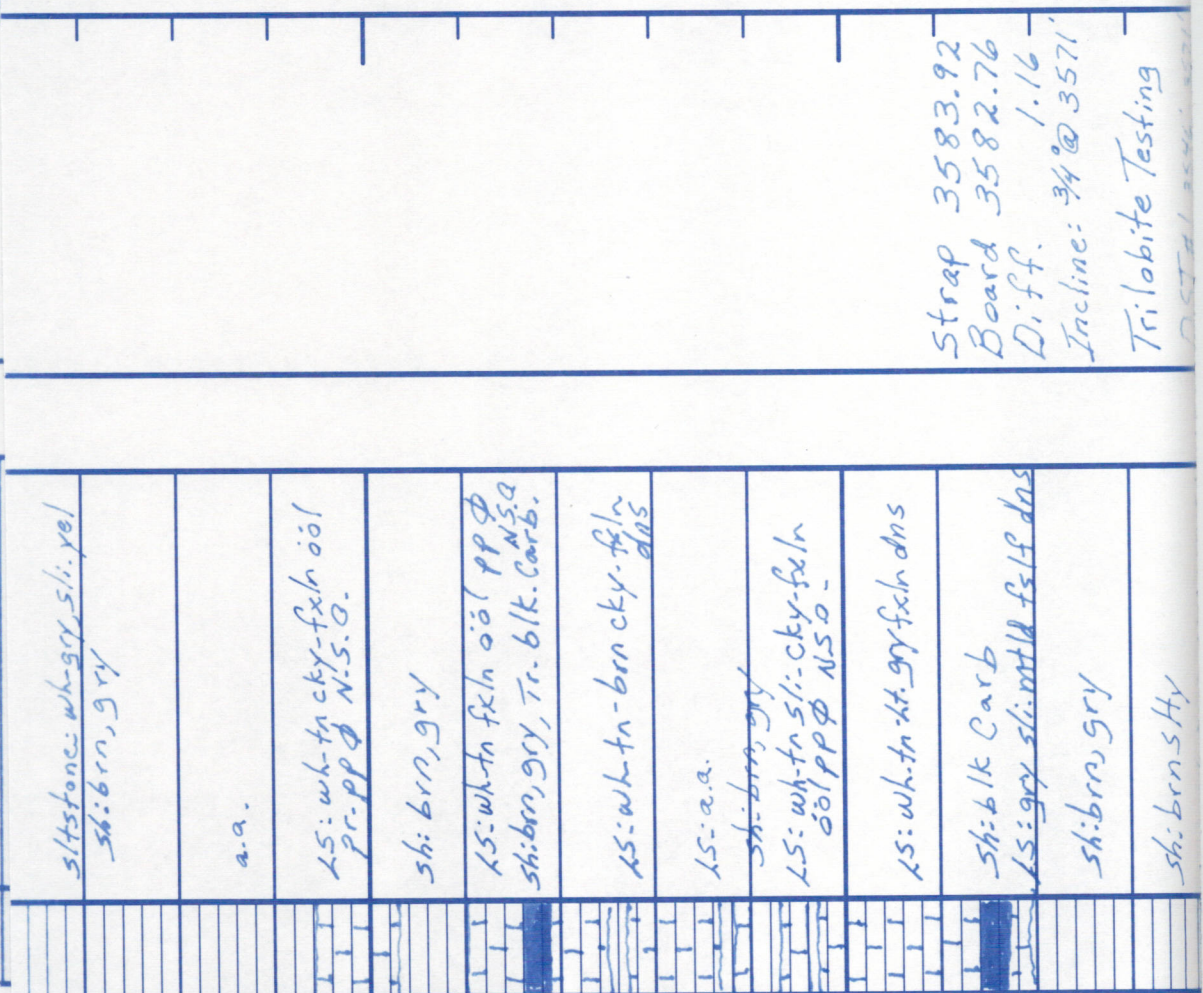 sltstone: wh-gry, sli. yel
sh: brn, gry
a.a.
LS: wh-tn cky-fxln ööl
pr. pp Ø N.S.O.
sh: brn, gry
LS: wh-tn fxln ööl pp Ø
N.S.O
sh: brn, gry, Tr. blk. Carb.
LS: wh-tn-brn cky-fxln
dns
LS: a.a.
sh: brn, gry
LS: wh-tn sli-cky-fxln
ööl pp Ø NSO.
LS: wh-tn-lt. gry fxln dns
Sh: blk Carb
LS: gry sli. mtld fslf dns
sh: brn, gry
sh: brn slty
Strap 3583.92
Board 3582.76
Diff. 1.16
Incline: 3/4° @ 3571'
Trilobite Testing
DST #1